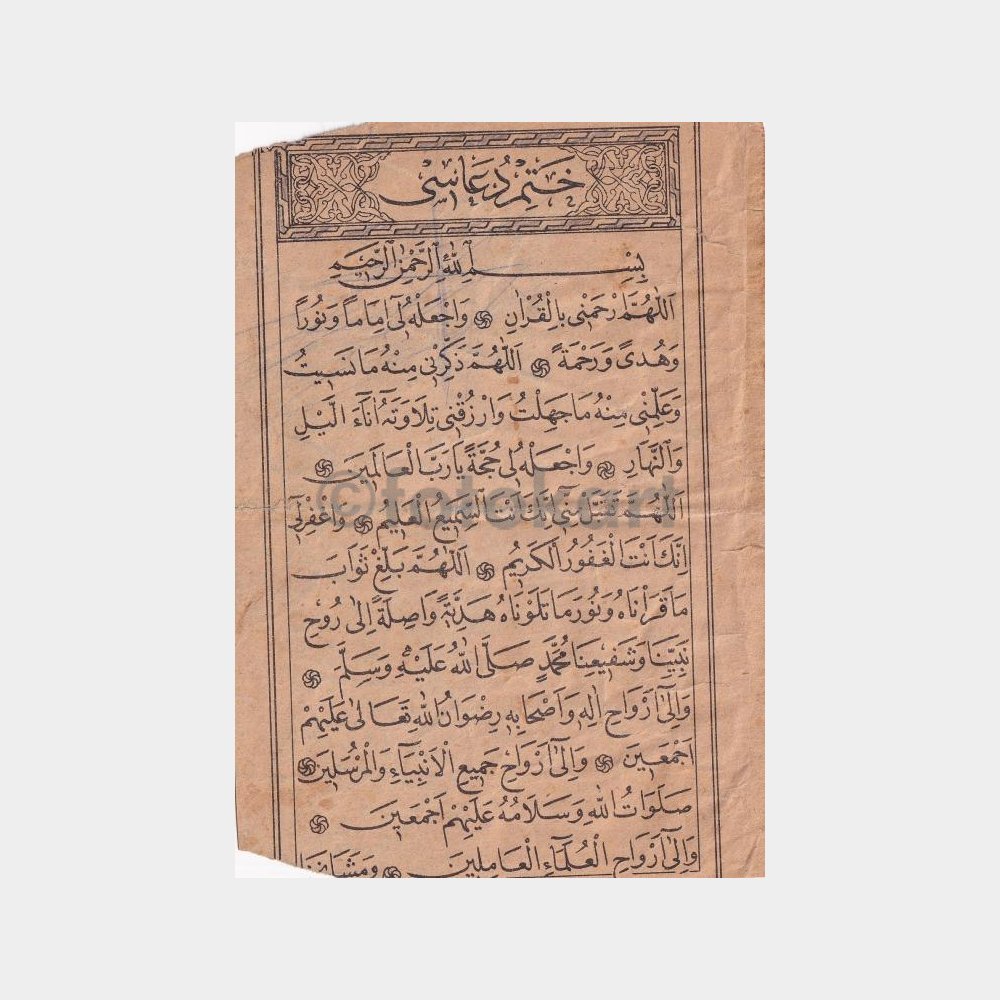 ختم دعاسى
بِسْمِ اللّٰهِ الرَّحْمٰنِ الرَّحِيمِ
اَللّٰهُمَّ ارْحَمْنِى بِالْقُرْاٰنِ ۞ وَاجْعَلْهُ لِٓى اِمَامًا وَنُورًا
وَهُدًى وَرَحْمَةً ۞ اَللّٰهُمَّ ذَكِّرْنِى مِنْهُ مَا نَسِيتُ
وَعَلِّمْنِى مِنْهُ مَا جَهِلْتُ وَارْزُقْنِى تِلَاوَتَهُ اٰنَٓاءَ الَّيْلِ
وَالنَّهَارِ ۞ وَاجْعَلْهُ لِى حُجَّةً يَارَبَّ الْعَالَمِينَ ۞
اَللّٰهُمَّ تَقَبَّلْ مِنِّى اِنَّكَ اَنْتَ السَّمِيعُ الْعَلِيمُ ۞ وَاغْفِرْلِٓى
اِنَّكَ اَنْتَ الْغَفُورُ الْكَرِيمُ ۞ اَللّٰهُمَّ بَلِّغْ ثَوَابَ
مَا قَرَاْنَاهُ وَنُورَ مَا تَلَوْنَاهُ هَدِيَّةً وَاصِلَةً اِلٰى رُوحِ
نَبِيِّنَا وَشَفِيعِنَا مُحَمَّدٍ صَلَّى اللّٰهُ عَلَيْهِ وَسَلَّمَ ۞
وَاِلٰٓى اَرْوَاحِ اٰلِهِ وَاَصْحَابِهِ رِضْوَانُ اللّٰهِ تَعَالٰى عَلَيْهِمْ
اَجْمَعِينَ ۞ وَاِلٰٓى اَرْوَاحِ جَمِيعِ الْاَنْبِيَٓاءِ وَالْمُرْسَلِينَ ۞
صَلَوَاتُ اللّٰهِ وَسَلَامُهُ عَلَيْهِمْ اَجْمَعِينَ ۞
وَاِلٰٓى اَرْوَاحِ الْعُلَمَٓاءِ الْعَامِلِينَ ۞
©fotokart